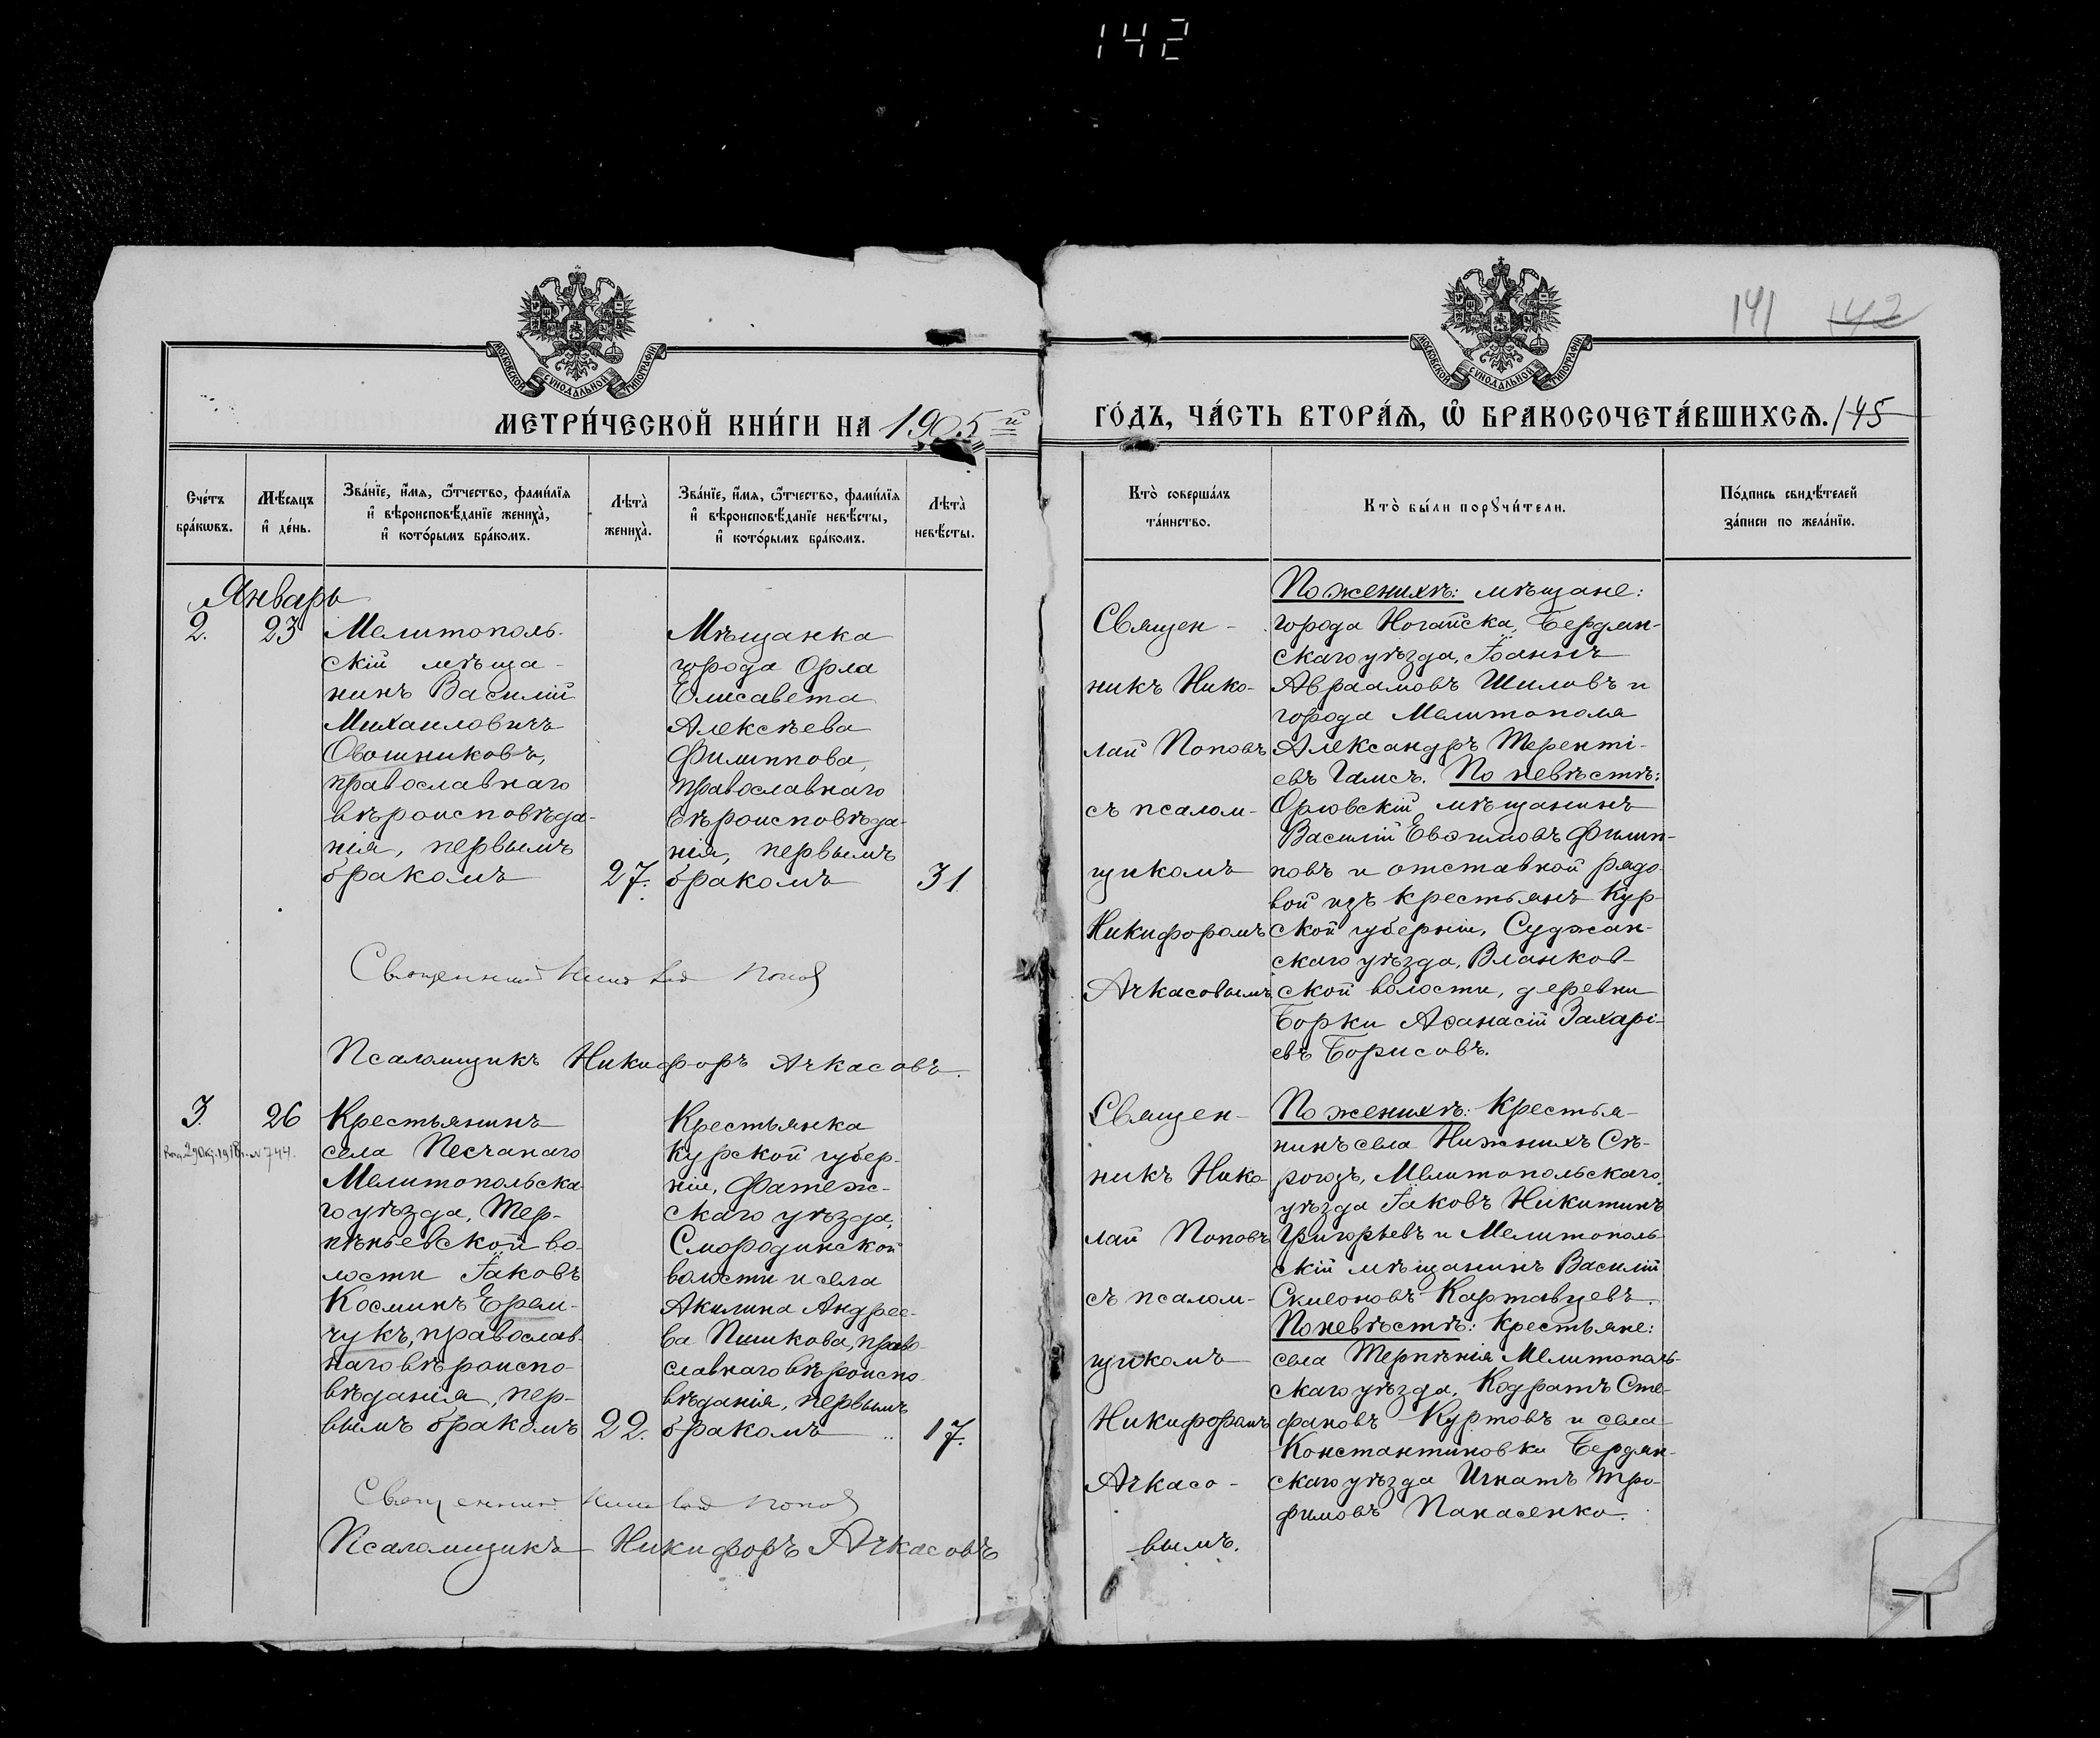 142
141 142
МОСКОВСКОЙ СѴНОДАЛЬНОЙ ТИПОГРАФІИ
МОСКОВСКОЙ СѴНОДАЛЬНОЙ ТИПОГРАФІИ
МЕТРИ́ЧЕСКОЙ КНИ́ГИ НА 1905й
ГО́ДЪ, ЧА́СТЬ ВТОРА́Ѧ, Ѽ БРАКОСОЧЕТА́ВШИХСѦ. 145
Сче́тъ
бра́кωвъ.
Мѣ́сяцъ
и҆ де́нь.
Зва́нїе, и҆́мя, ѻ҆́тчество, фами́лїя
и҆ вѣроисповѣ́данїе жениха̀,
и҆ кото́рымъ бра́комъ.
Лѣта̀
жениха̀.
Зва́нїе, и҆́мя, ѻ҆́тчество, фами́лїя
и҆ вѣроисповѣ́данїе невѣ́сты,
и҆ кото́рымъ бра́комъ.
Лѣта̀
невѣ́сты.
Кто̀ соверша́лъ
та́инство.
Кто̀ бы́ли порꙋчи́тели.
По́дпись свидѣ́телей
за́писи по жела́нїю.
Январь
2. 23
Мелитополь-
скій мѣща-
нинъ Василій
Михаиловичъ
Овошниковъ,
православнаго
вѣроисповѣда-
нія, первымъ
бракомъ
27.
Мѣщанка
города Орла
Елисавета
Алексѣева
Филиппова,
православнаго
вѣроисповѣда-
нія, первымъ
бракомъ
31
Священникъ Николай Попов
Псаломщикъ Никифоръ Ачкасовъ.
Священ-
никъ Нико-
лай Поповъ
съ псалом-
щикомъ
Никифоромъ
Ачкасовымъ
По женихѣ: мѣщане:
города Ногайска, Бердян-
скаго уѣзда, Іоаннъ
Авраамовъ Шиловъ и
города Мелитополя
Александръ Теренті-
евъ Гамсъ. По невѣстѣ:
Орловскій мѣщанинъ
Василій Евѳимовъ Филип-
повъ и отставной рядо-
вой изъ крестьянъ Кур-
ской губерніи, Суджан-
скаго уѣзда, Вланков-
ской волости, деревни
Борки Аѳанасій Захарі-
евъ Борисовъ.
3. 26
№ 744.
Крестьянинъ
села Песчанаго
Мелитопольска-
го уѣзда, Тер-
пѣньевской во-
лости Іаковъ
Косминъ Ерем-
чукъ, православ-
наго вѣроиспо-
вѣданія, пер-
вымъ бракомъ
22.
Крестьянка
Курской губер-
ніи, Фатеж-
скаго уѣзда,
Смородинской
волости и села
Акилина Андрее-
ва Пшикова, право-
славнаго вѣроиспо-
вѣданія, первымъ
бракомъ
17.
Священникъ Николай Попов
Псаломщикъ Никифоръ Ачкасовъ
Священ-
никъ Нико-
лай Поповъ
съ псалом-
щикомъ
Никифоромъ
Ачкасо-
вымъ.
По женихѣ: Крестья-
нинъ села Нижнихъ Сѣ-
рогозъ, Мелитопольскаго
уѣзда Іаковъ Никитинъ
Григорьевъ и Мелитополь-
скій мѣщанинъ Василій
Симеоновъ Картавцевъ.
По невѣстѣ: крестьяне:
села Терпѣнія Мелитополь-
скаго уѣзда, Кодратъ Сте-
фановъ Куртовъ и села
Константиновки Бердян-
скаго уѣзда Игнатъ Тро-
фимовъ Панасенко.